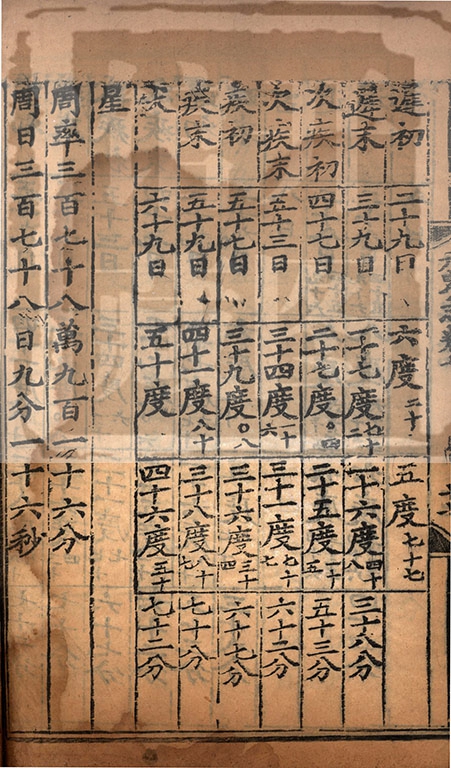 遲初 二十九日 六度二十 五度七十七
遲末 三十九日 一十七度七十二 一十六度四十八 三十八分
次疾初 四十七日 二十七度〇四 二十五度一十五 五十三分
次疾末 五十三日 三十四度一十六 三十一度七十七 六十二分
疾初 五十七日 三十九度〇八 三十六度三十四 六十七分
疾末 五十九日 四十一度八十 三十八度八十七 七十分
伏 六十九日 五十度 四十六度五十 七十二分
星
周率三百七十八萬九百一十六分
周日三百七十八日九分一十六秒